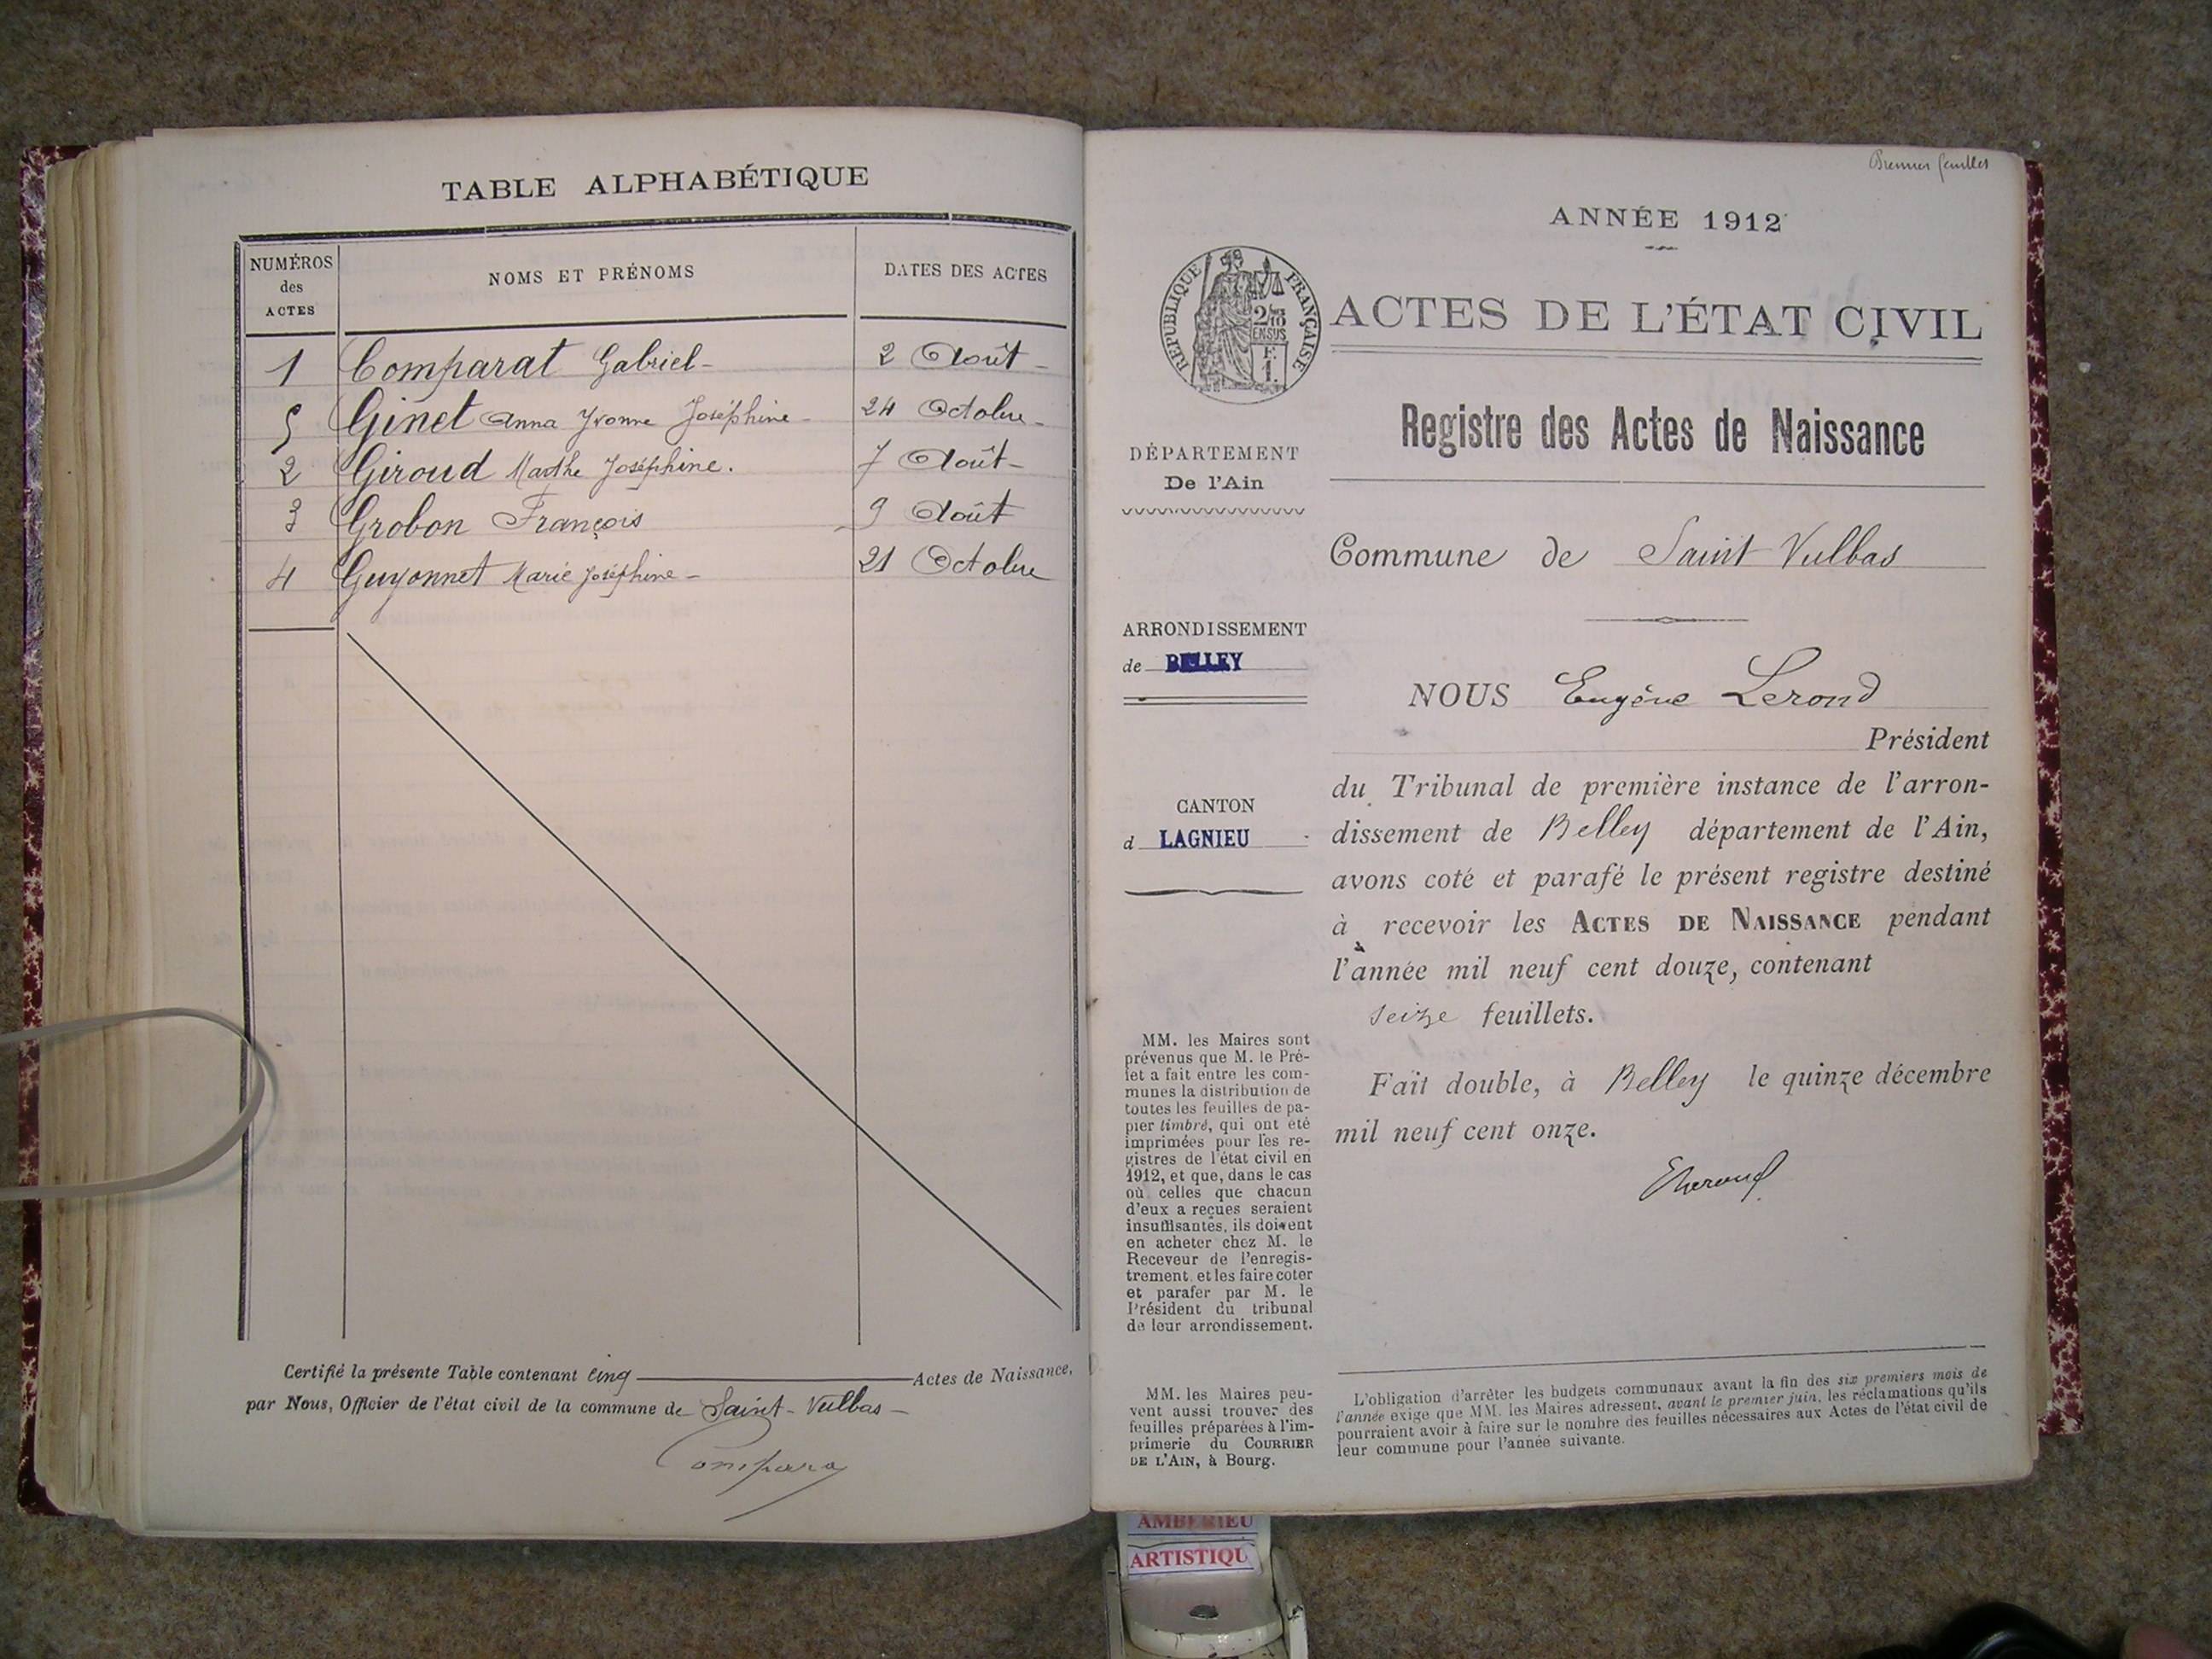 TABLE ALPHABÉTIQUE
NUMÉROS des ACTES
NOMS ET PRÉNOMS
DATES DES ACTES
1 Comparat Gabriel - 2 Août -
5 Ginet Anna Yvonne Joséphine - 24 Octobre -
2 Giroud Marthe Joséphine. 7 Août -
3 Grobon François 9 Août
4 Guyonnet Marie Joséphine - 21 Octobre
Certifié la présente Table contenant Cinq Actes de Naissance,
par Nous, Officier de l'état civil de la commune de Saint-Vulbas -
Premier feuillet
ANNÉE 1912
RÉPUBLIQUE FRANÇAISE
ACTES DE L'ÉTAT CIVIL
Registre des Actes de Naissance
DÉPARTEMENT
De l'Ain
Commune de Saint Vulbas
ARRONDISSEMENT
de BELLEY
NOUS Eugène Lerond
Président
CANTON
d LAGNIEU
du Tribunal de première instance de l'arron-
dissement de Belley département de l'Ain,
avons coté et parafé le présent registre destiné
à recevoir les ACTES DE NAISSANCE pendant
l'année mil neuf cent douze, contenant
seize feuillets.
Fait double, à Belley le quinze décembre
mil neuf cent onze.
MM. les Maires sont
prévenus que M. le Pré-
fet a fait entre les com-
munes la distribution de
toutes les feuilles de pa-
pier timbré, qui ont été
imprimées pour les re-
gistres de l'état civil en
1912, et que, dans le cas
où celles que chacun
d'eux a reçues seraient
insuffisantes, ils doivent
en acheter chez M. le
Receveur de l'enregis-
trement, et les faire coter
et parafer par M. le
Président du tribunal
de leur arrondissement.
MM. les Maires peu-
vent aussi trouver des
feuilles préparées à l'im-
primerie du COURRIER
DE L'AIN, à Bourg.
L'obligation d'arrêter les budgets communaux avant la fin des six premiers mois de
l'année exige que MM. les Maires adressent, avant le premier juin, les réclamations qu'ils
pourraient avoir à faire sur le nombre des feuilles nécessaires aux Actes de l'état civil de
leur commune pour l'année suivante.
AMBERIEU
ARTISTIQU